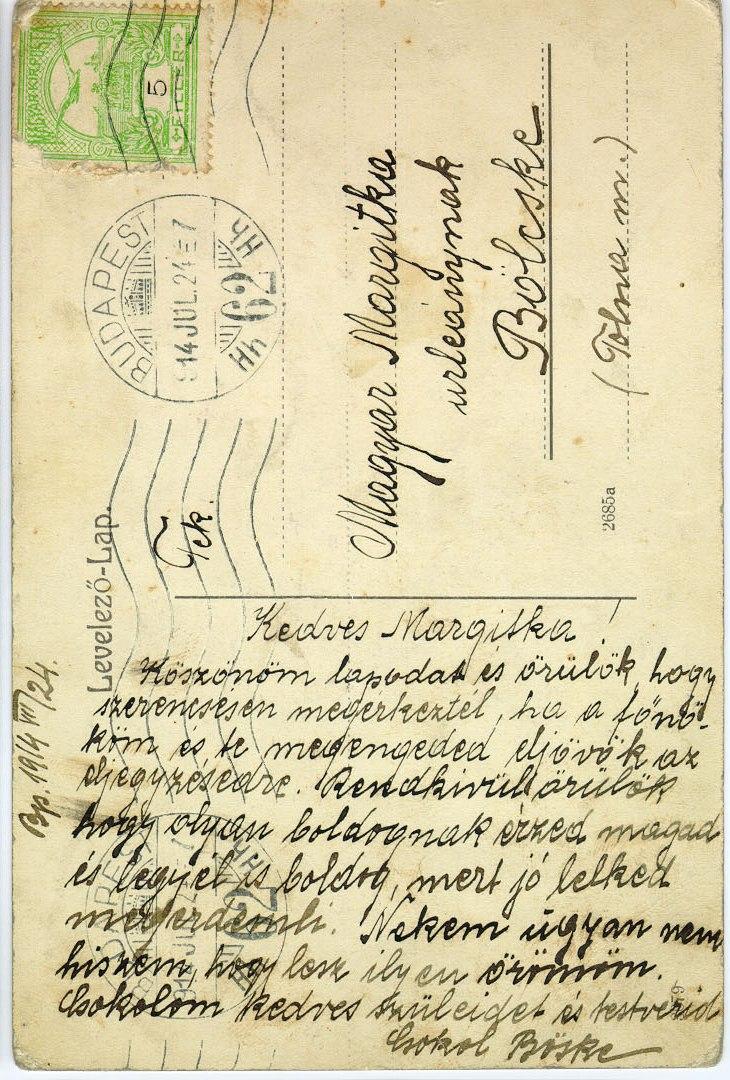 MAGYAR KIR. POSTA
5
FILLÉR
BUDAPEST
914 JUL. 24
62
Hh
Hh
Levelező-Lap.
Tek.
Magyar Margitka
urleánynak
Bölcske
(Tolna m.)
2685a
Bp. 1914 VII/24.
Kedves Margitka!
Köszönöm lapodat és örülök, hogy
szerencsésen megérkeztél, ha a főnö-
köm és te megengeded eljövök az
eljegyzésedre. Rendkivül örülök
hogy olyan boldognak érzed magad
és legyél is boldog, mert jó lelked
megérdemli. Nekem ugyan nem
hiszem, hogy lesz ilyen örömöm.
Csokolom kedves szüleidet és testvérid
Csokol Böske